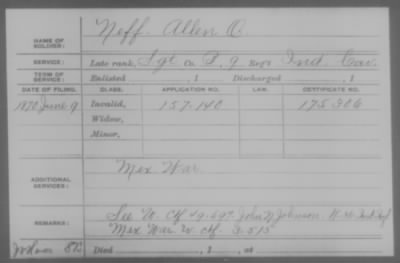 NAME OF SOLDIER: Neff, Allen O.
SERVICE: Late rank, Sgt Co. 9 Reg't Ind. Cav.
TERM OF SERVICE: Enlisted , 1 Discharged , 1
DATE OF FILING. CLASS. APPLICATION NO. LAW. CERTIFICATE NO.
1870 June 9 Invalid, 157.140 175.306
Widow,
Minor,
ADDITIONAL SERVICES: Mex War
REMARKS: See W. Cf 49.697 John N Johnson
Mex War W. cf. 9.515
Died , 1 , at